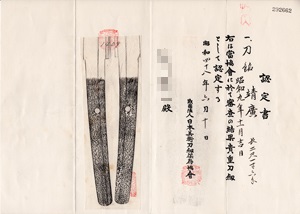 232662
認定書
一、刀 銘 靖廣
昭和九年十一月吉日
長 二尺一寸六分
右は當協會に於て審査の結果貴重刀剣
として認定する
昭和四十八年六月十日
財團法人日本美術刀剣保存協會
殿